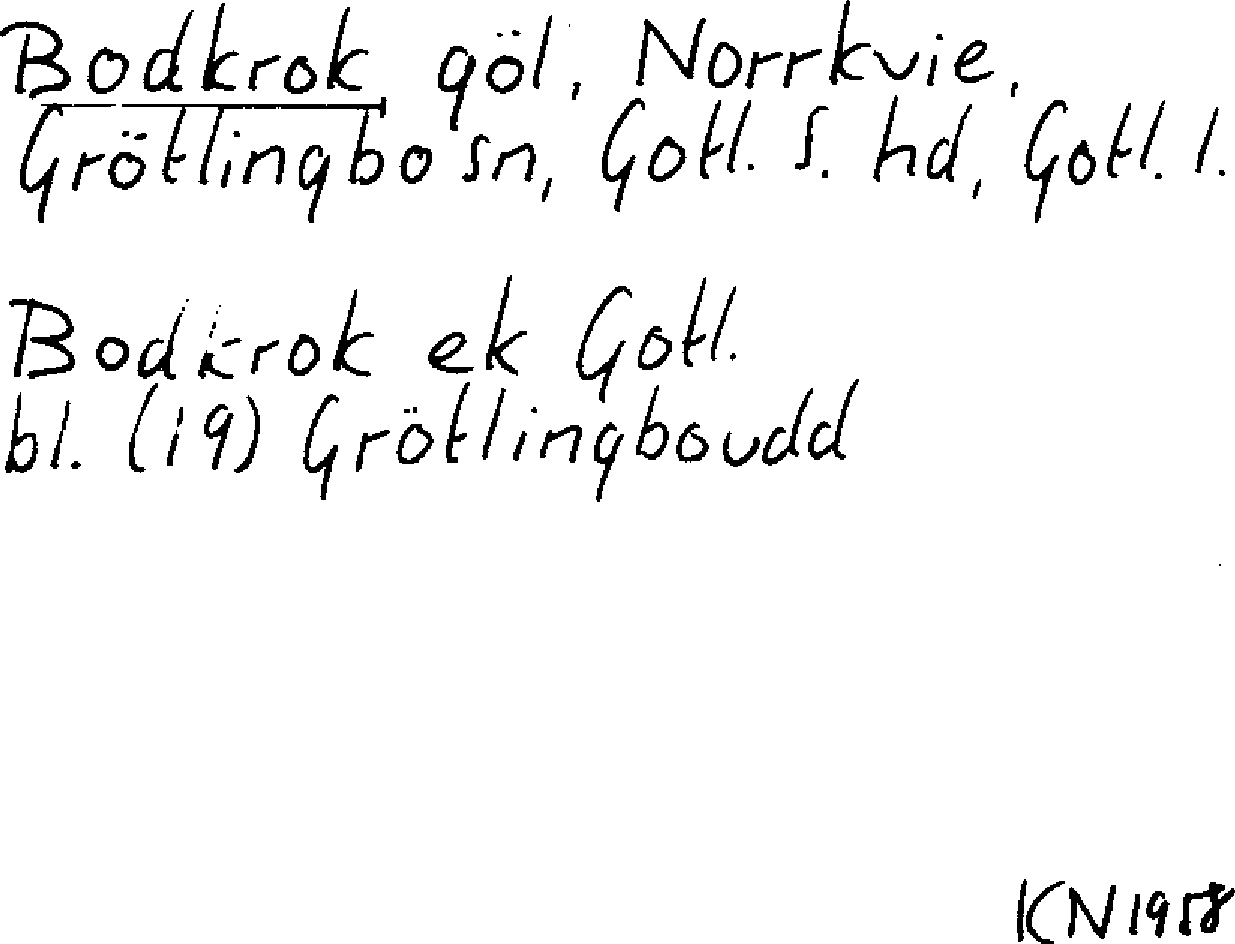 Bodkrok göl, Norrkvie,
Grötlingbo sn, Gotl. S. hd, Gotl. l.
Bodkrok ek Gotl.
bl. (19) Grötlingboudd
KN 1958